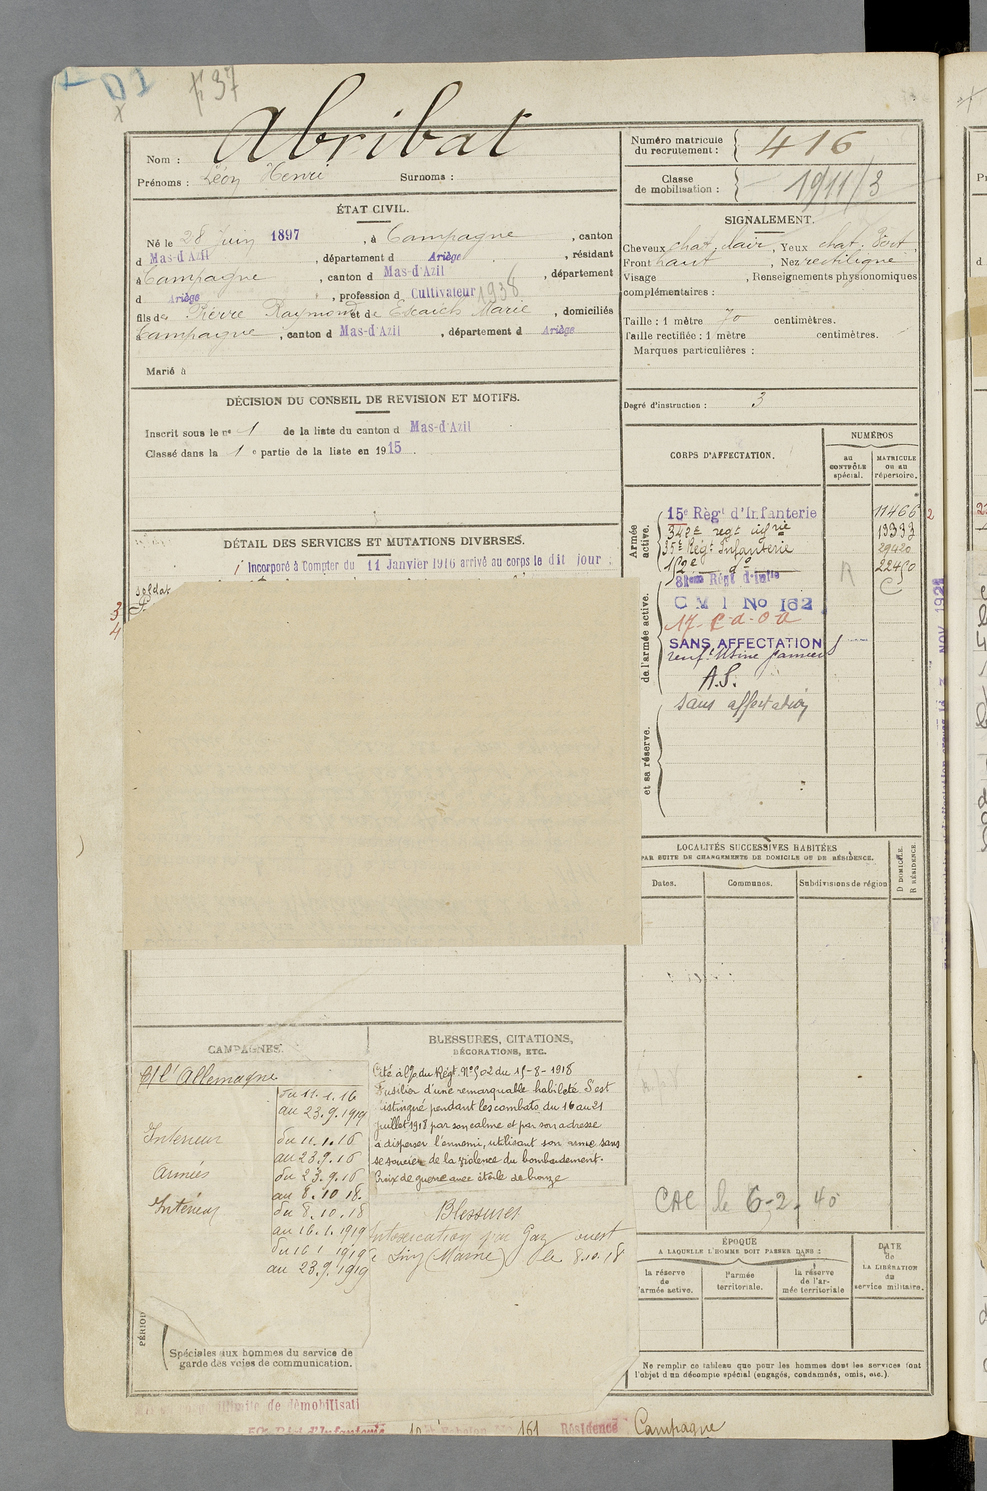 F 37
Nom : Abribat
Prénoms : Léon Henri Surnoms :
ÉTAT CIVIL.
Né le 28 Juin 1897, à Campagne, canton
d Mas-d'Azil, département d Ariège, résidant
à Campagne, canton d Mas-d'Azil, département
d Ariège, profession d Cultivateur 1938
fils de Pierre Raymond et de Escaich Marie, domiciliés
à Campagne, canton d Mas-d'Azil, département d Ariège
Marié à
DÉCISION DU CONSEIL DE REVISION ET MOTIFS.
Inscrit sous le nº 1 de la liste du canton d Mas-d'Azil
Classé dans la 1 e partie de la liste en 1915.
DÉTAIL DES SERVICES ET MUTATIONS DIVERSES.
Incorporé à Compter du 11 Janvier 1916 arrivé au corps le dit jour
soldat
3
4
Numéro matricule
du recrutement : 416
Classe
de mobilisation : 1911/3
SIGNALEMENT.
Cheveux chat. clair, Yeux chat. vert
Front haut, Nez rectiligne
Visage , Renseignements physionomiques
complémentaires :
Taille : 1 mètre 70 centimètres.
Taille rectifiée : 1 mètre centimètres.
Marques particulières :
Degré d'instruction : 3
CORPS D'AFFECTATION.
NUMÉROS
au
CONTRÔLE
spécial.
MATRICULE
OU AU
répertoire.
Armée
active.
15e Régt d'Infanterie 11466
342e regt infrie 13333
35e Régt Infanterie 29420
120e do 22450
81eme Régt d'Infie R
de l'armée active.
C M I No 162
SANS AFFECTATION
A.S.
et sa réserve.
sans affectation
LOCALITÉS SUCCESSIVES HABITÉES
PAR SUITE DE CHANGEMENTS DE DOMICILE OU DE RÉSIDENCE.
D DOMICILE.
R RÉSIDENCE.
Dates.
Communes.
Subdivisions de région
CAC le 6-2-40
CAMPAGNES.
C/ l'Allemagne
du 11.1.16
au 23.9.1919
Intérieur du 11.1.16
au 23.9.16
Armées du 23.9.16
au 8.10.18.
Intérieur du 8.10.18
au 16.1.1919
du 16.1.1919
au 23.9.1919
PÉRIOD
Spéciales aux hommes du service de
garde des voies de communication.
BLESSURES, CITATIONS,
DÉCORATIONS, ETC.
Cité à l'o du Régt. Nº 502 du 15-8-1918
Fusilier d'une remarquable habileté S'est
distingué pendant les combats du 16 au 21
juillet 1918 par son calme et par son adresse
à disperser l'ennemi, utilisant son arme sans
se soucier de la violence du bombardement.
Croix de guerre avec étoile de bronze
Blessures
Intoxication par Gaz ouest
(Marne) le 8.10.18
ÉPOQUE
A LAQUELLE L'HOMME DOIT PASSER DANS :
DATE
de
LA LIBÉRATION
du
service militaire.
la réserve
de
l'armée active.
l'armée
territoriale.
la réserve
de l'ar-
mée territoriale
Ne remplir ce tableau que pour les hommes dont les services font
l'objet d'un décompte spécial (engagés, condamnés, omis, etc.).
de démobilisati
Régt d'Infanterie
161 Résidence Campagne